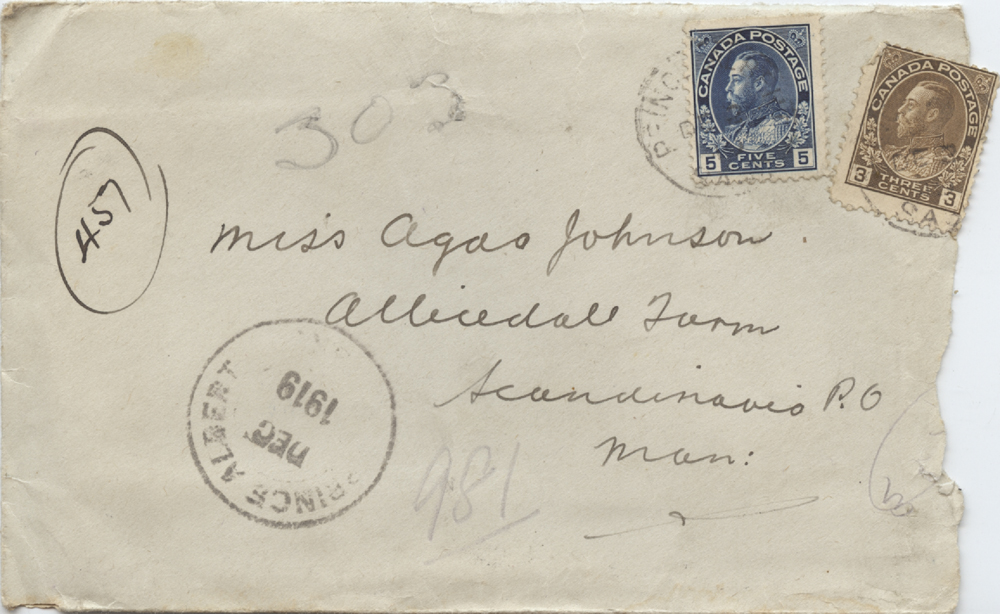 CANADA POSTAGE
5 FIVE CENTS 5
CANADA POSTAGE
3 THREE CENTS 3
SA
303
457
Miss Agas Johnson.
Allicedale Farm
Scandinavia P.O
Man:
PRINCE ALBERT
DEC
1919
981